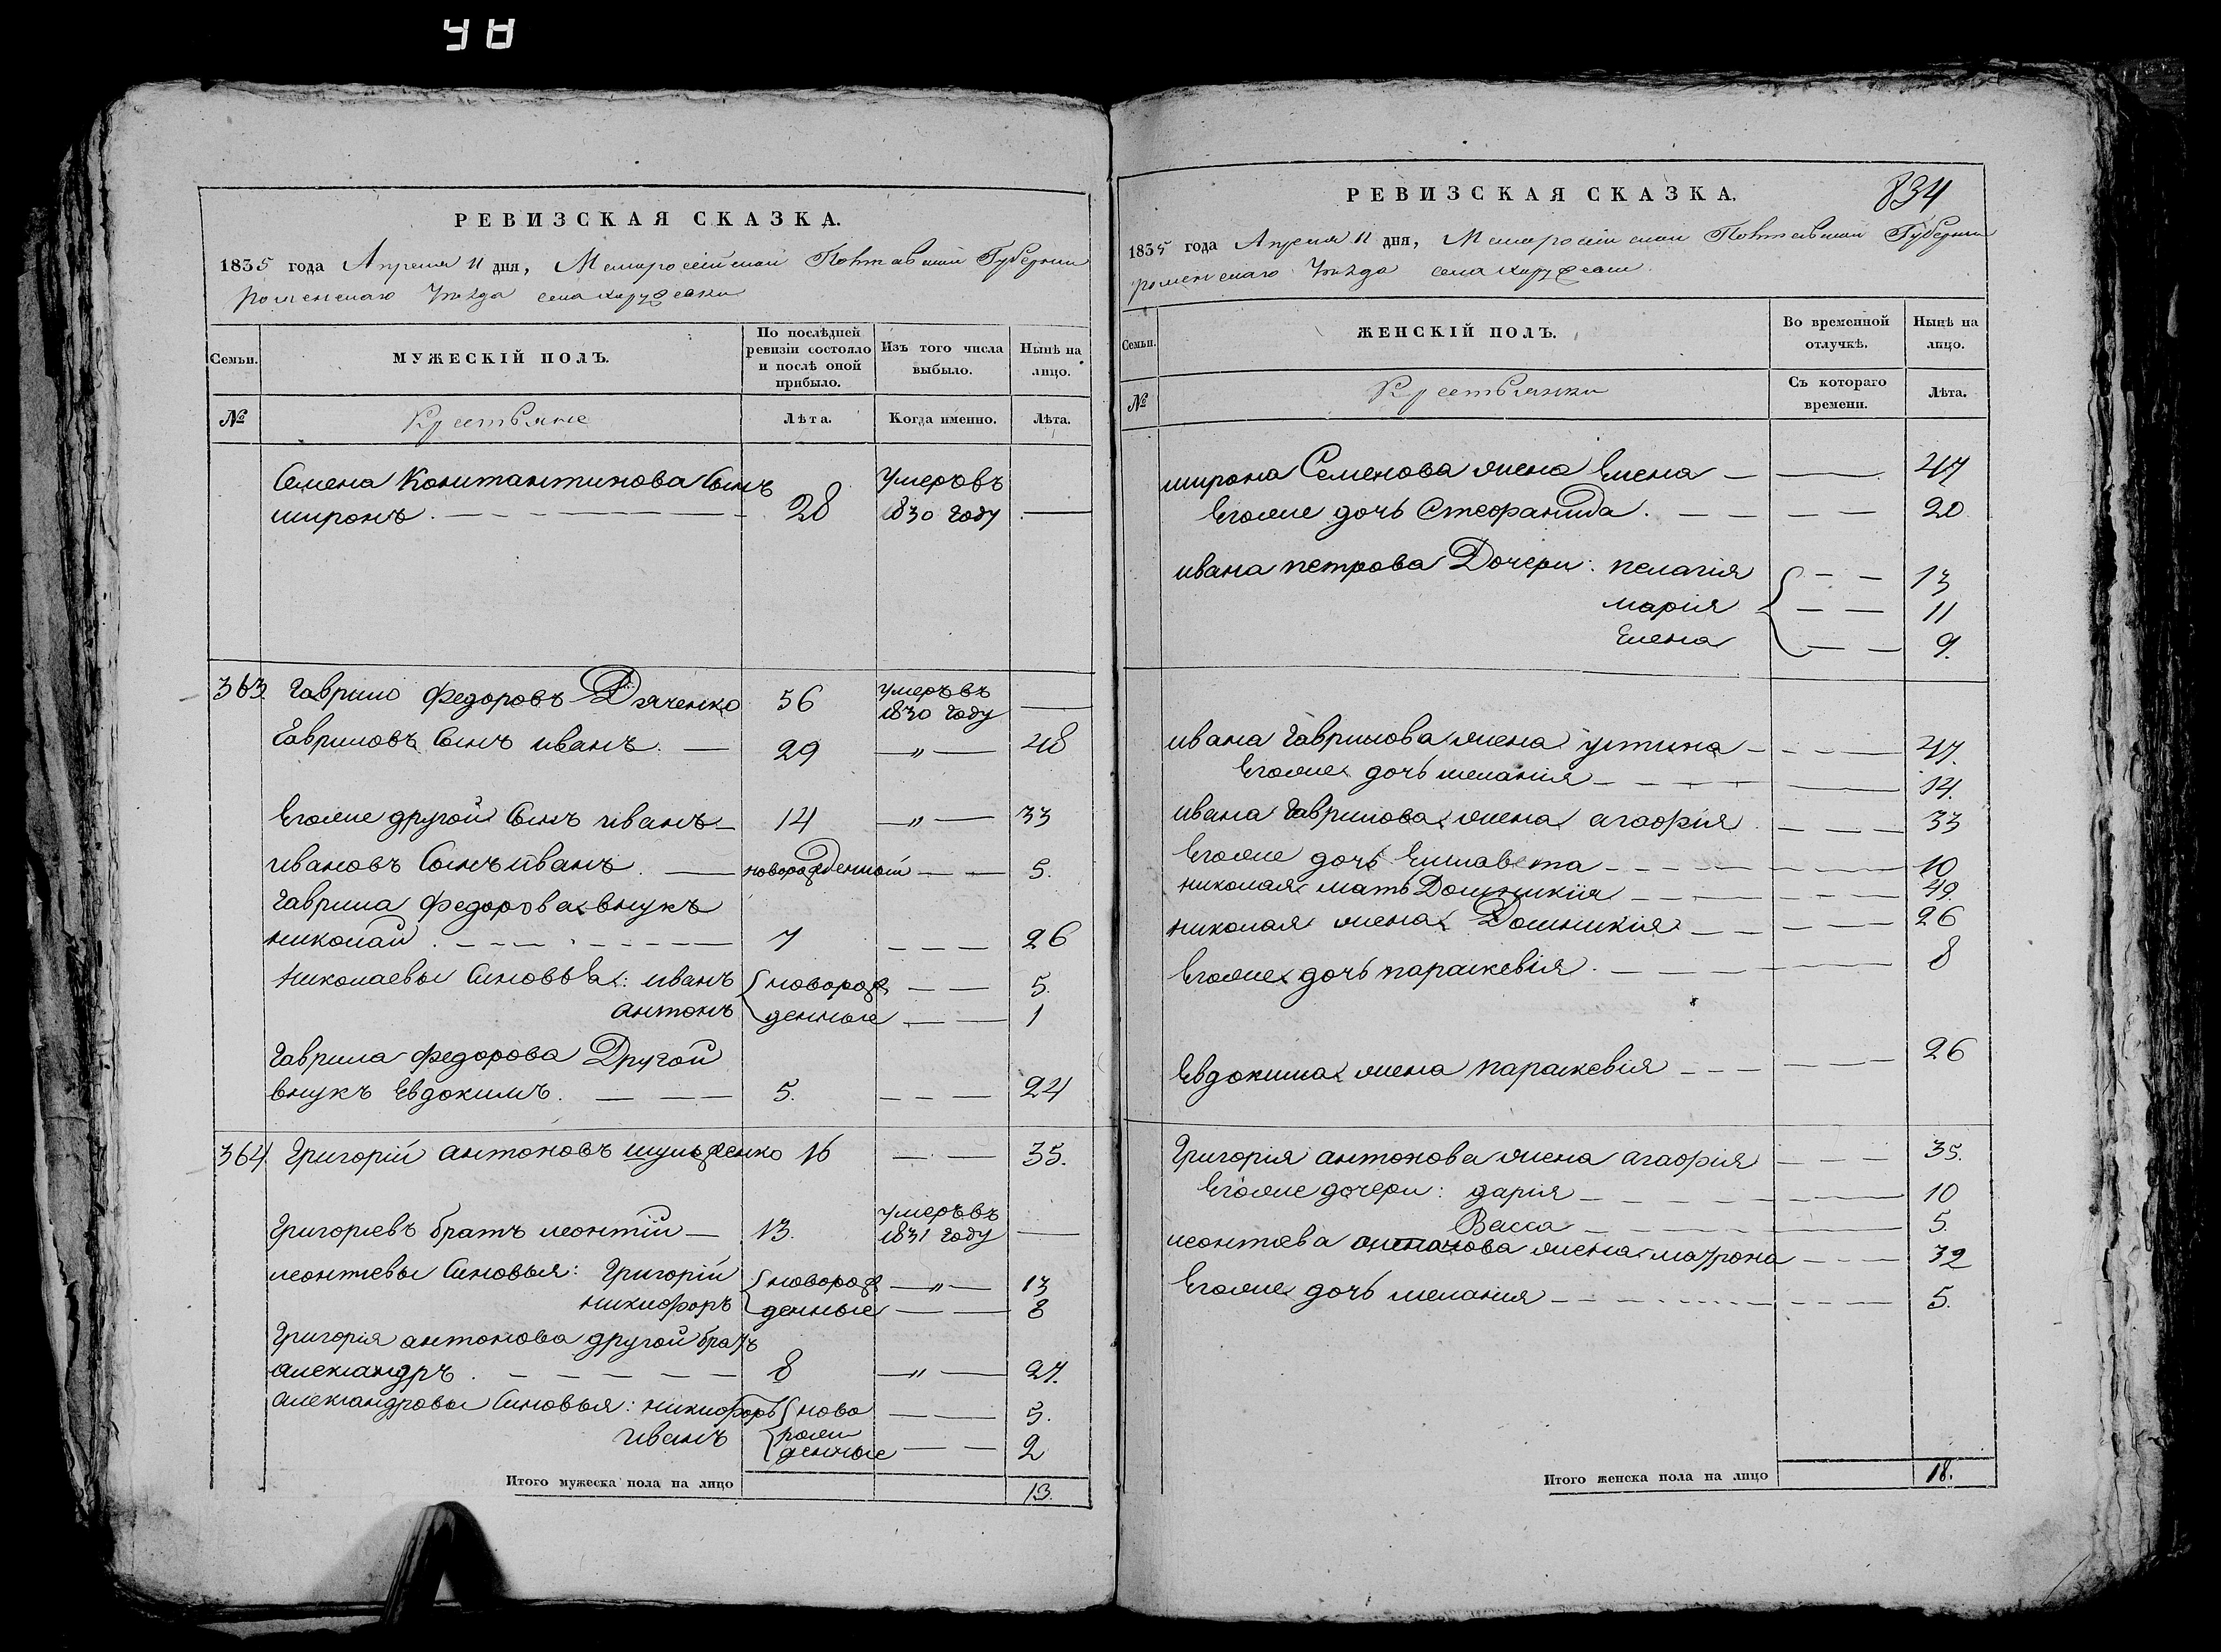 98
РЕВИЗСКАЯ СКАЗКА.
1835 года Апреля 11 дня, Малоросійской Полтавской Губерніи
роменскаго Уѣзда села
Семьи.
МУЖЕСКІЙ ПОЛЪ.
По послѣдней ревизіи состояло и послѣ оной прибыло.
Изъ того числа выбыло.
Нынѣ на лицо.
№
Крестьяне
Лѣта.
Когда именно.
Лѣта.
Семена Константинова Сынъ
миронъ 28 умеръ въ 1830 году
363 Гаврило Федоровъ Дяченко 56 умеръ въ 1830 году
Гавриловъ Сынъ иванъ 29 " 48
Егоже другой Сынъ иванъ 14 " 33
ивановъ Сынъ иванъ новорожденной 5.
Гаврила Федорова внукъ
николай 7 26
Николаевы Синовья: иванъ новорож 5.
антонъ денные 1
Гаврила Федорова Другой
внукъ Евдокимъ 5. 24
364 Григорій антоновъ шульженко 16 35.
Григоріевъ братъ леонтій 13. умеръ въ 1831 году
леонтіевы Синовья: Григорій новорож " 13
никифоръ денные 8
Григорія антонова другой братъ
александръ 8 " 27.
александровы Синовья: никифоръ ново 5.
иванъ рожденные 2
Итого мужеска пола на лицо 13.
РЕВИЗСКАЯ СКАЗКА.
834
1835 года Апреля 11 дня, Малоросійской Полтавской Губерніи
роменскаго Уѣзда села
Семьи.
ЖЕНСКІЙ ПОЛЪ.
Во временной отлучкѣ.
Нынѣ на лицо.
№
Крестьянки
Съ котораго времени.
Лѣта.
мирона Семенова жена Елена 47
Егоже дочь Стефанида 20
ивана петрова Дочери: пелагія 13
марія 11
Елена 9.
ивана Гаврилова жена устина 47.
Егоже дочь меланія 14.
ивана Гаврилова жена агафія 33
Егоже дочь Елисавета 10
николая мать Домникія 49.
николая жена Домникія 26
Егоже дочь параскевія 8
Евдокима жена параскевія 26
Григорія антонова жена агафія 35.
Егоже дочери: дарія 10
Васса 5
леонтіева антонова жена матрона 32
Егоже дочь меланія 5.
Итого женска пола на лицо 18.